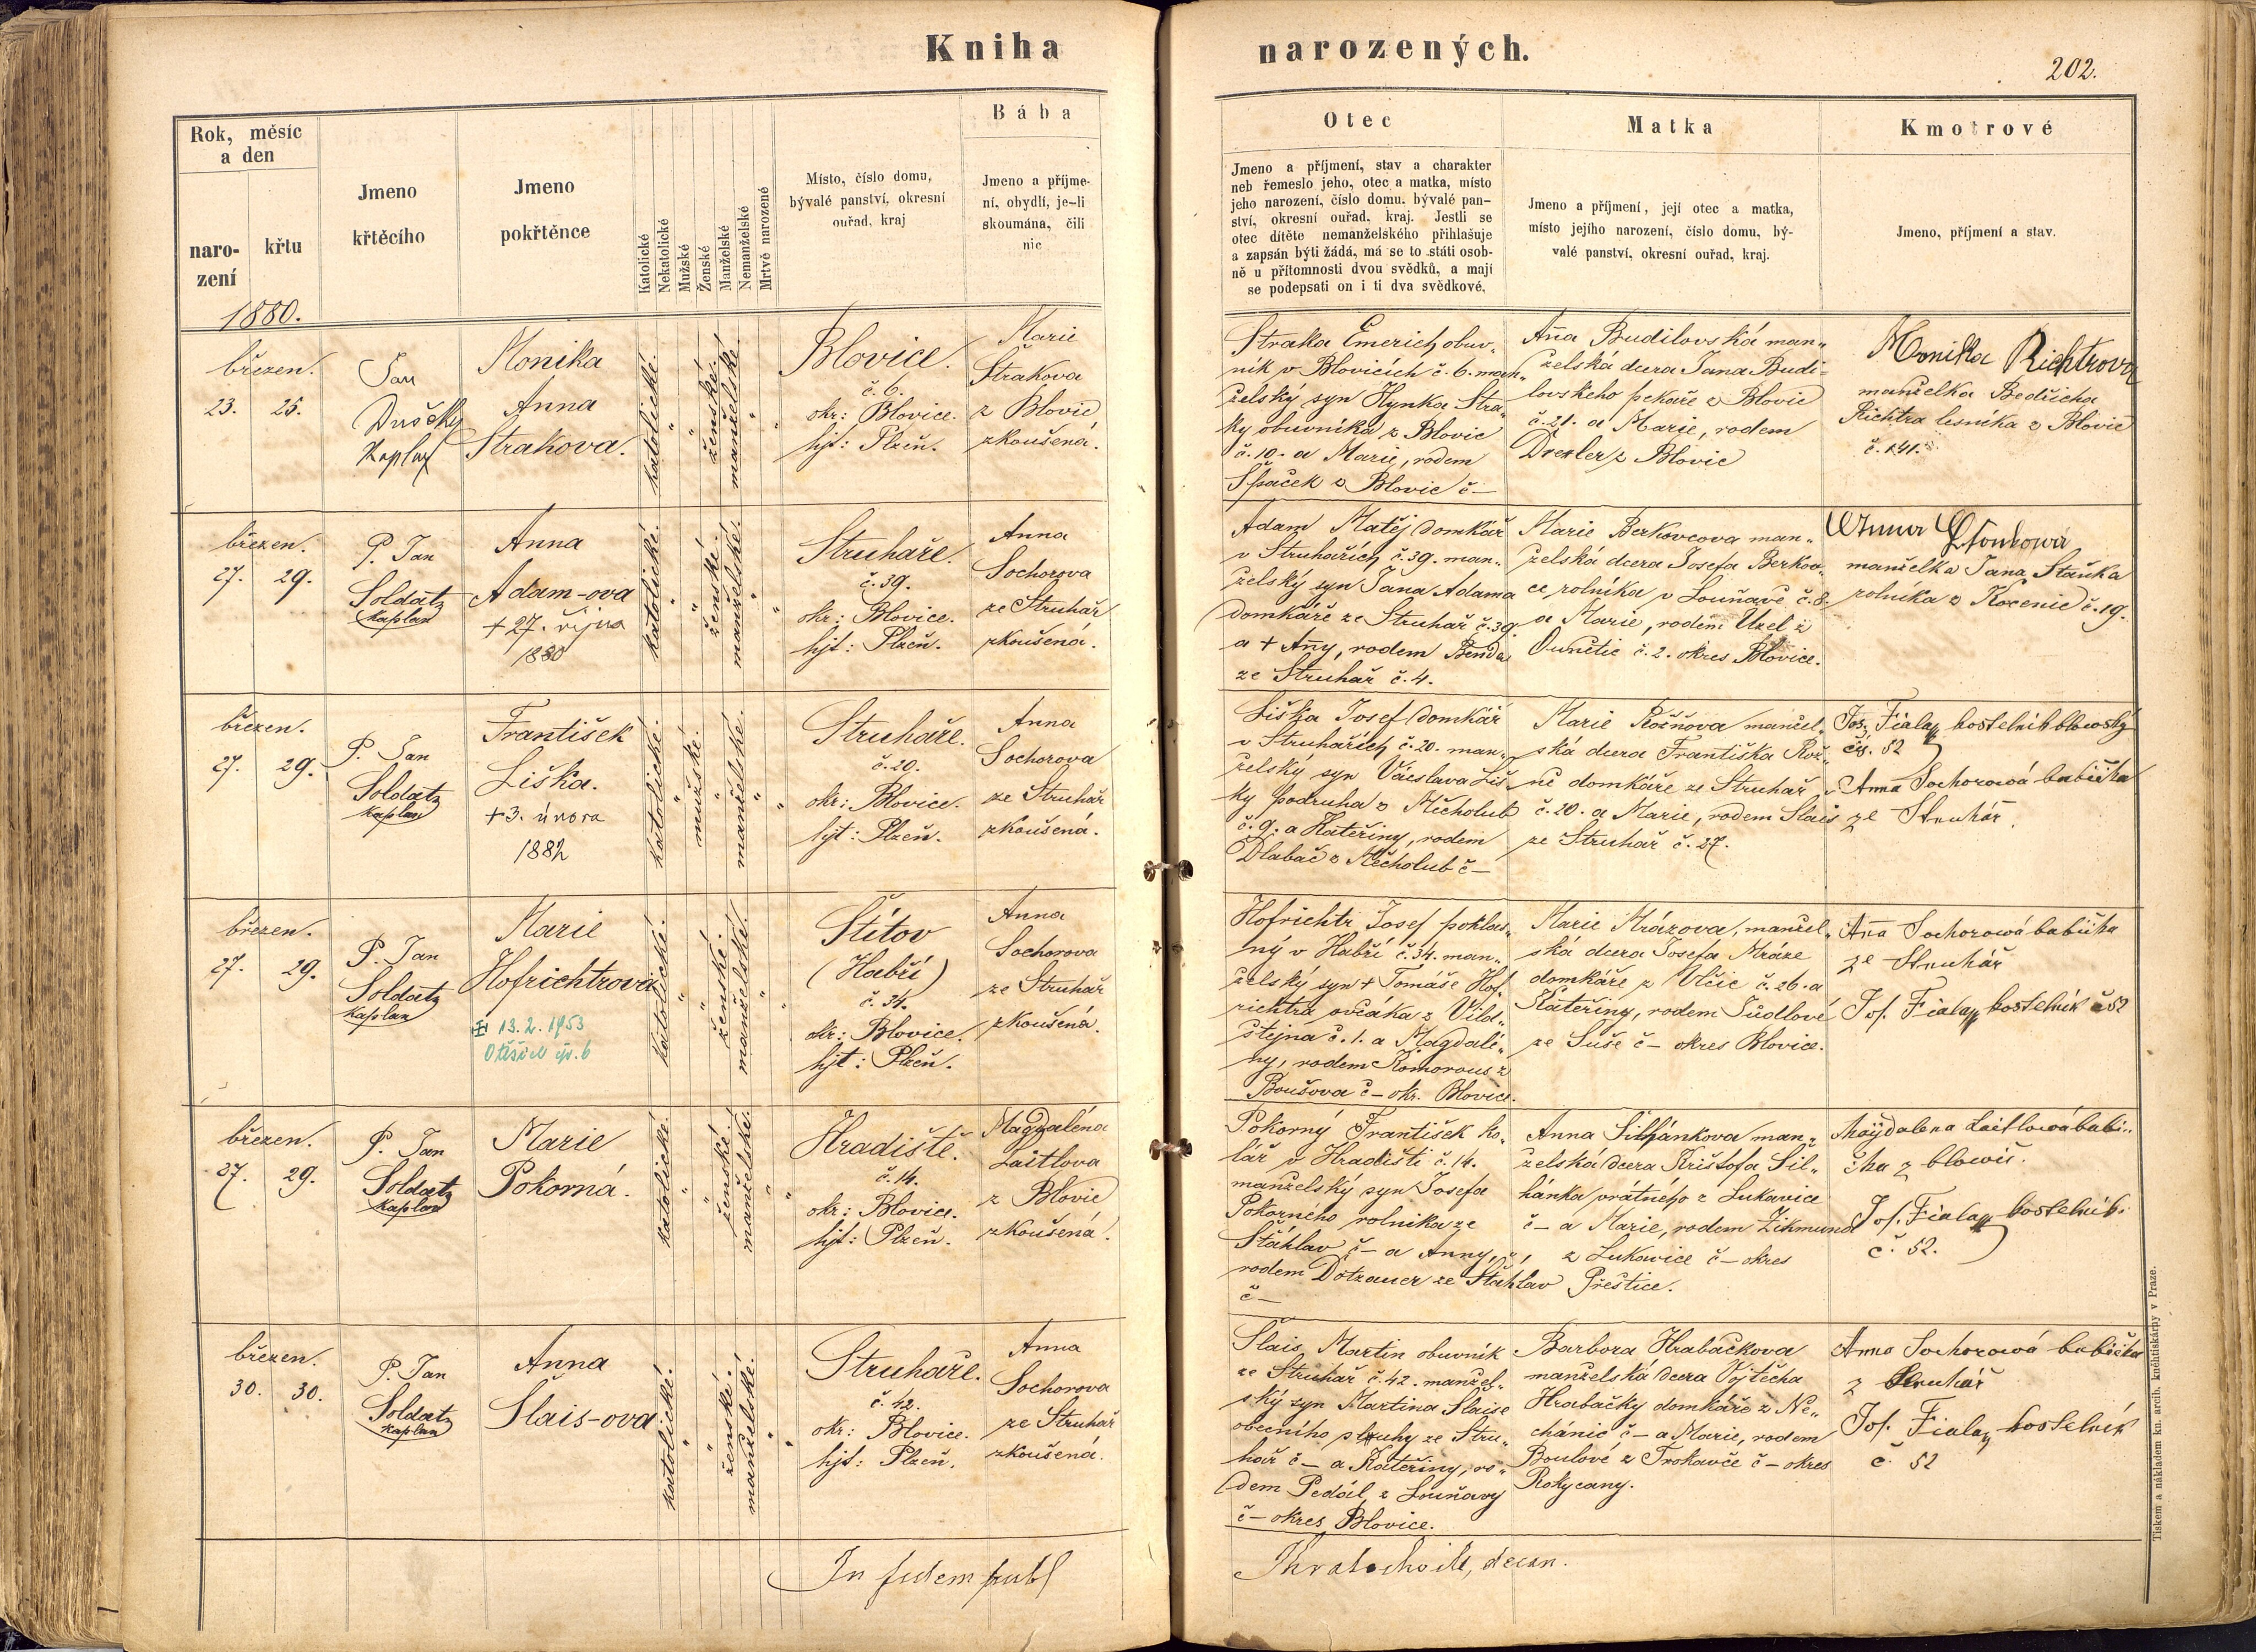 Kniha
narozených.
202.
Rok, měsíc
a den
naro-
zení
křtu
Jmeno
křtěcího
Jmeno
pokřtěnce
Katolické
Nekatolické
Mužské
Ženské
Manželské
Nemanželské
Mrtvě narozené
Místo, číslo domu,
bývalé panství, okresní
ouřad, kraj
Bába
Jmeno a příjme-
ní, obydlí, je-li
skoumána, čili
nic
Otec
Jmeno a příjmení, stav a charakter
neb řemeslo jeho, otec a matka, místo
jeho narození, číslo domu. bývalé pan-
ství, okresní ouřad, kraj. Jestli se
otec dítěte nemanželského přihlašuje
a zapsán býti žádá, má se to státi osob-
ně u přítomnosti dvou svědků, a mají
se podepsati on i ti dva svědkové.
Matka
Jmeno a příjmení, její otec a matka,
místo jejího narození, číslo domu, bý-
valé panství, okresní ouřad, kraj.
Kmotrové
Jmeno, příjmení a stav.
1880.
březen.
23. 25.
Jan
Dušek
Kaplan
Monika
Anna
Strakova.
katolické.
ženské.
manželské
Blovice.
č. 6.
okr: Blovice.
hjt: Plzeň.
Marie
Strakova
z Blovic
zkoušená.
Straka Emerich obuv-
ník v Blovicích č. 6. man-
želský syn Hynka Stra-
ky obuvníka z Blovic
č. 10. a Marie, rodem
Špaček z Blovic č –
Aña Budilovská man-
želská dcera Jana Budi-
lovského pekaře z Blovic
č. 21. a Marie, rodem
Drexler z Blovic
Monika Richtrova
manželka Bedřicha
Richtra lesníka z Blovic
č. 141.
březen.
27. 29.
P. Jan
Soldatz
kaplan
Anna
Adam-ova
+ 27. října
1880
katolické.
ženské.
manželské.
Struhaře.
č. 39.
okr: Blovice.
hjt: Plzeň.
Anna
Sochorova
ze Struhař
zkoušená.
Adam Matěj domkář
v Struhařích č. 39. man-
želský syn Jana Adama
domkáře ze Struhař č. 39
a + Añy, rodem Benda
ze Struhař č. 4.
Marie Berkovcova man-
želská dcera Josefa Berkov-
ce, rolníka v Louňavě č. 8.
a Marie, rodem Uzel z
Ounětic č. 2. okres Blovice.
manželka Jana Staňka
rolníka z Kocenic č. 19.
březen.
27. 29.
P. Jan
Soldatz
kaplan
František
Liška.
+ 3. února
1882
katolické.
mužské.
manželské.
Struhaře.
č. 20.
okr: Blovice.
hjt: Plzeň.
Anna
Sochorova
ze Struhař
zkoušená.
Liška Josef domkář
v Struhařích č. 20. man-
želský syn Václava Liš-
ky podruha z Měcholub
č. 9. a Kateřiny, rodem
Dlabač z Měcholub č –
Marie Rožňova manžel-
ská dcera Františka Rož-
ně domkáře ze Struhař
č. 20. a Marie, rodem Slais
ze Struhař č. 27.
Jos. Fiala kostelník blowský
čís. 52
Anna Sochorowá babička
ze Struhář.
březen.
27. 29.
P. Jan
Soldatz
kaplan
Marie
Hofrichtrova
13. 2. 1953
katolické.
ženské.
manželské.
Štítov
(Habří)
č. 34.
okr: Blovice.
hjt: Plzeň.
Anna
Sochorova
ze Struhař
zkoušená.
Hofrichtr Josef poklas-
ný v Habří č. 34. man-
želský syn + Tomáše Hof-
richtra ovčáka z Vild-
štejna č. 1. a Magdalé-
ny, rodem Komorous z
Boušova č – okr. Blovice.
Marie Mrázova, manžel-
ská dcera Josefa Mráze
domkáře z Vlčic č. 26. a
Kateřiny, rodem Šůdlové
ze Suše č – okres Blovice.
Aña Sochorowá babička
ze Struhář
Jos. Fiala kostelník č 52
březen.
27. 29.
P. Jan
Soldatz
kaplan
Marie
Pokorná.
katolické.
ženské.
manželské.
Hradiště.
č. 14.
okr: Blovice.
hjt: Plzeň.
Magdaléna
Laitlova
z Blovic
zkoušená.
Pokorný František ko-
lář v Hradišti č. 14.
manželský syn Josefa
Pokorného rolníka ze
Šťáhlav č – a Anny,
rodem Dotzauer ze Šťáhlav
č –
Anna Silhánkova man-
želská dcera Krištofa Sil-
hánka vrátného z Lukavice
č – a Marie, rodem Zikmund
z Lukavice č – okres
Přeštice.
Magdalena Laitlowá babi-
čka z blowic.
Jos. Fiala kostelník
č. 52.
březen.
30. 30.
P. Jan
Soldatz
kaplan
Anna
Šlais-ova
katolické.
ženské.
manželské.
Struhaře.
č. 42.
okr: Blovice.
hjt: Plzeň.
Anna
Sochorova
ze Struhař
zkoušená.
Šlais Martin obuvník
ze Struhař č. 42. manžel-
ský syn Martina Šlaise
obecního sluhy ze Stru-
hař č – a Kateřiny, ro-
dem Pedál z Louňavy
č – okres Blovice.
Barbora Hrabačkova
manželská dcera Vojtěcha
Hrabačky domkáře z Ne-
chánic č – a Marie, rodem
Boulové z Trokavče č – okres
Rokycany.
Anna Sochorowá babička
z Struhář
Jos. Fiala kostelník
č. 52
In fidem publ
Chvalochvile, decan.
Tiskem a nákladem kn. arcib. knihtiskárny v Praze.